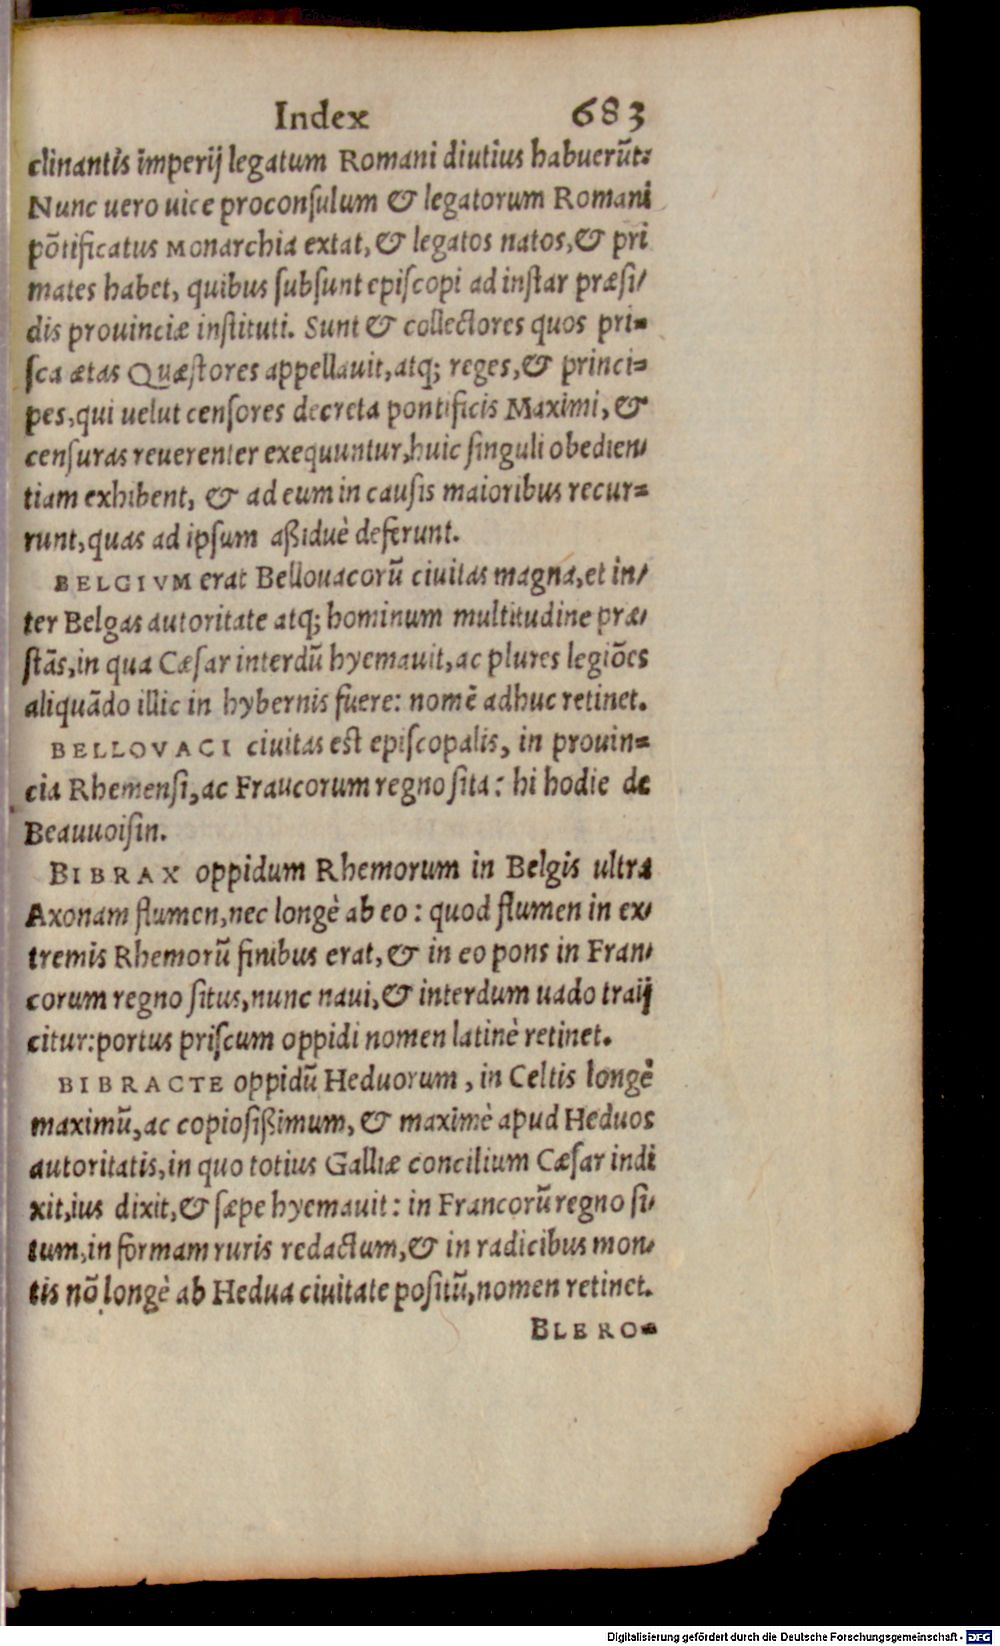 Index 683
clinantis imperij legatum Romani diutius habuerūt:
Nunc uero uice proconſulum & legatorum Romani
pōtificatus Monarchia extat, & legatos natos, & pri
mates habet, quibus ſubſunt epiſcopi ad inſtar præſi/
dis prouinciæ inſtituti. Sunt & collectores quos pri=
ſca ætas Quæſtores appellauit, atq; reges, & princi=
pes, qui uelut cenſores decreta pontificis Maximi, &
cenſuras reuerenter exequuntur, huic ſinguli obedien/
tiam exhibent, & ad eum in cauſis maioribus recur=
runt, quas ad ipſum aßiduè deferunt.
BELGIVM erat Bellouacorū ciuitas magna, et in/
ter Belgas autoritate atq; hominum multitudine præ/
ſtās, in qua Cæſar interdū hyemauit, ac plures legiōes
aliquādo illic in hybernis fuere: nomē adhuc retinet.
BELLOVACI ciuitas eſt epiſcopalis, in prouin=
cia Rhemenſi, ac Fraucorum regno ſita: hi hodie de
Beauuoiſin.
BIBRAX oppidum Rhemorum in Belgis ultra
Axonam flumen, nec longè ab eo: quod flumen in ex/
tremis Rhemorū finibus erat, & in eo pons in Fran/
corum regno ſitus, nunc naui, & interdum uado traij
citur: portus priſcum oppidi nomen latinè retinet.
BIBRACTE oppidū Heduorum, in Celtis longè
maximū, ac copioſißimum, & maximè apud Heduos
autoritatis, in quo totius Galliæ concilium Cæſar indi
xit, ius dixit, & ſæpe hyemauit: in Francorū regno ſi/
tum, in formam ruris redactum, & in radicibus mon/
tis nō longè ab Hedua ciuitate poſitū, nomen retinet.
BLERO=
Digitalisierung gefördert durch die Deutsche Forschungsgemeinschaft - DFG